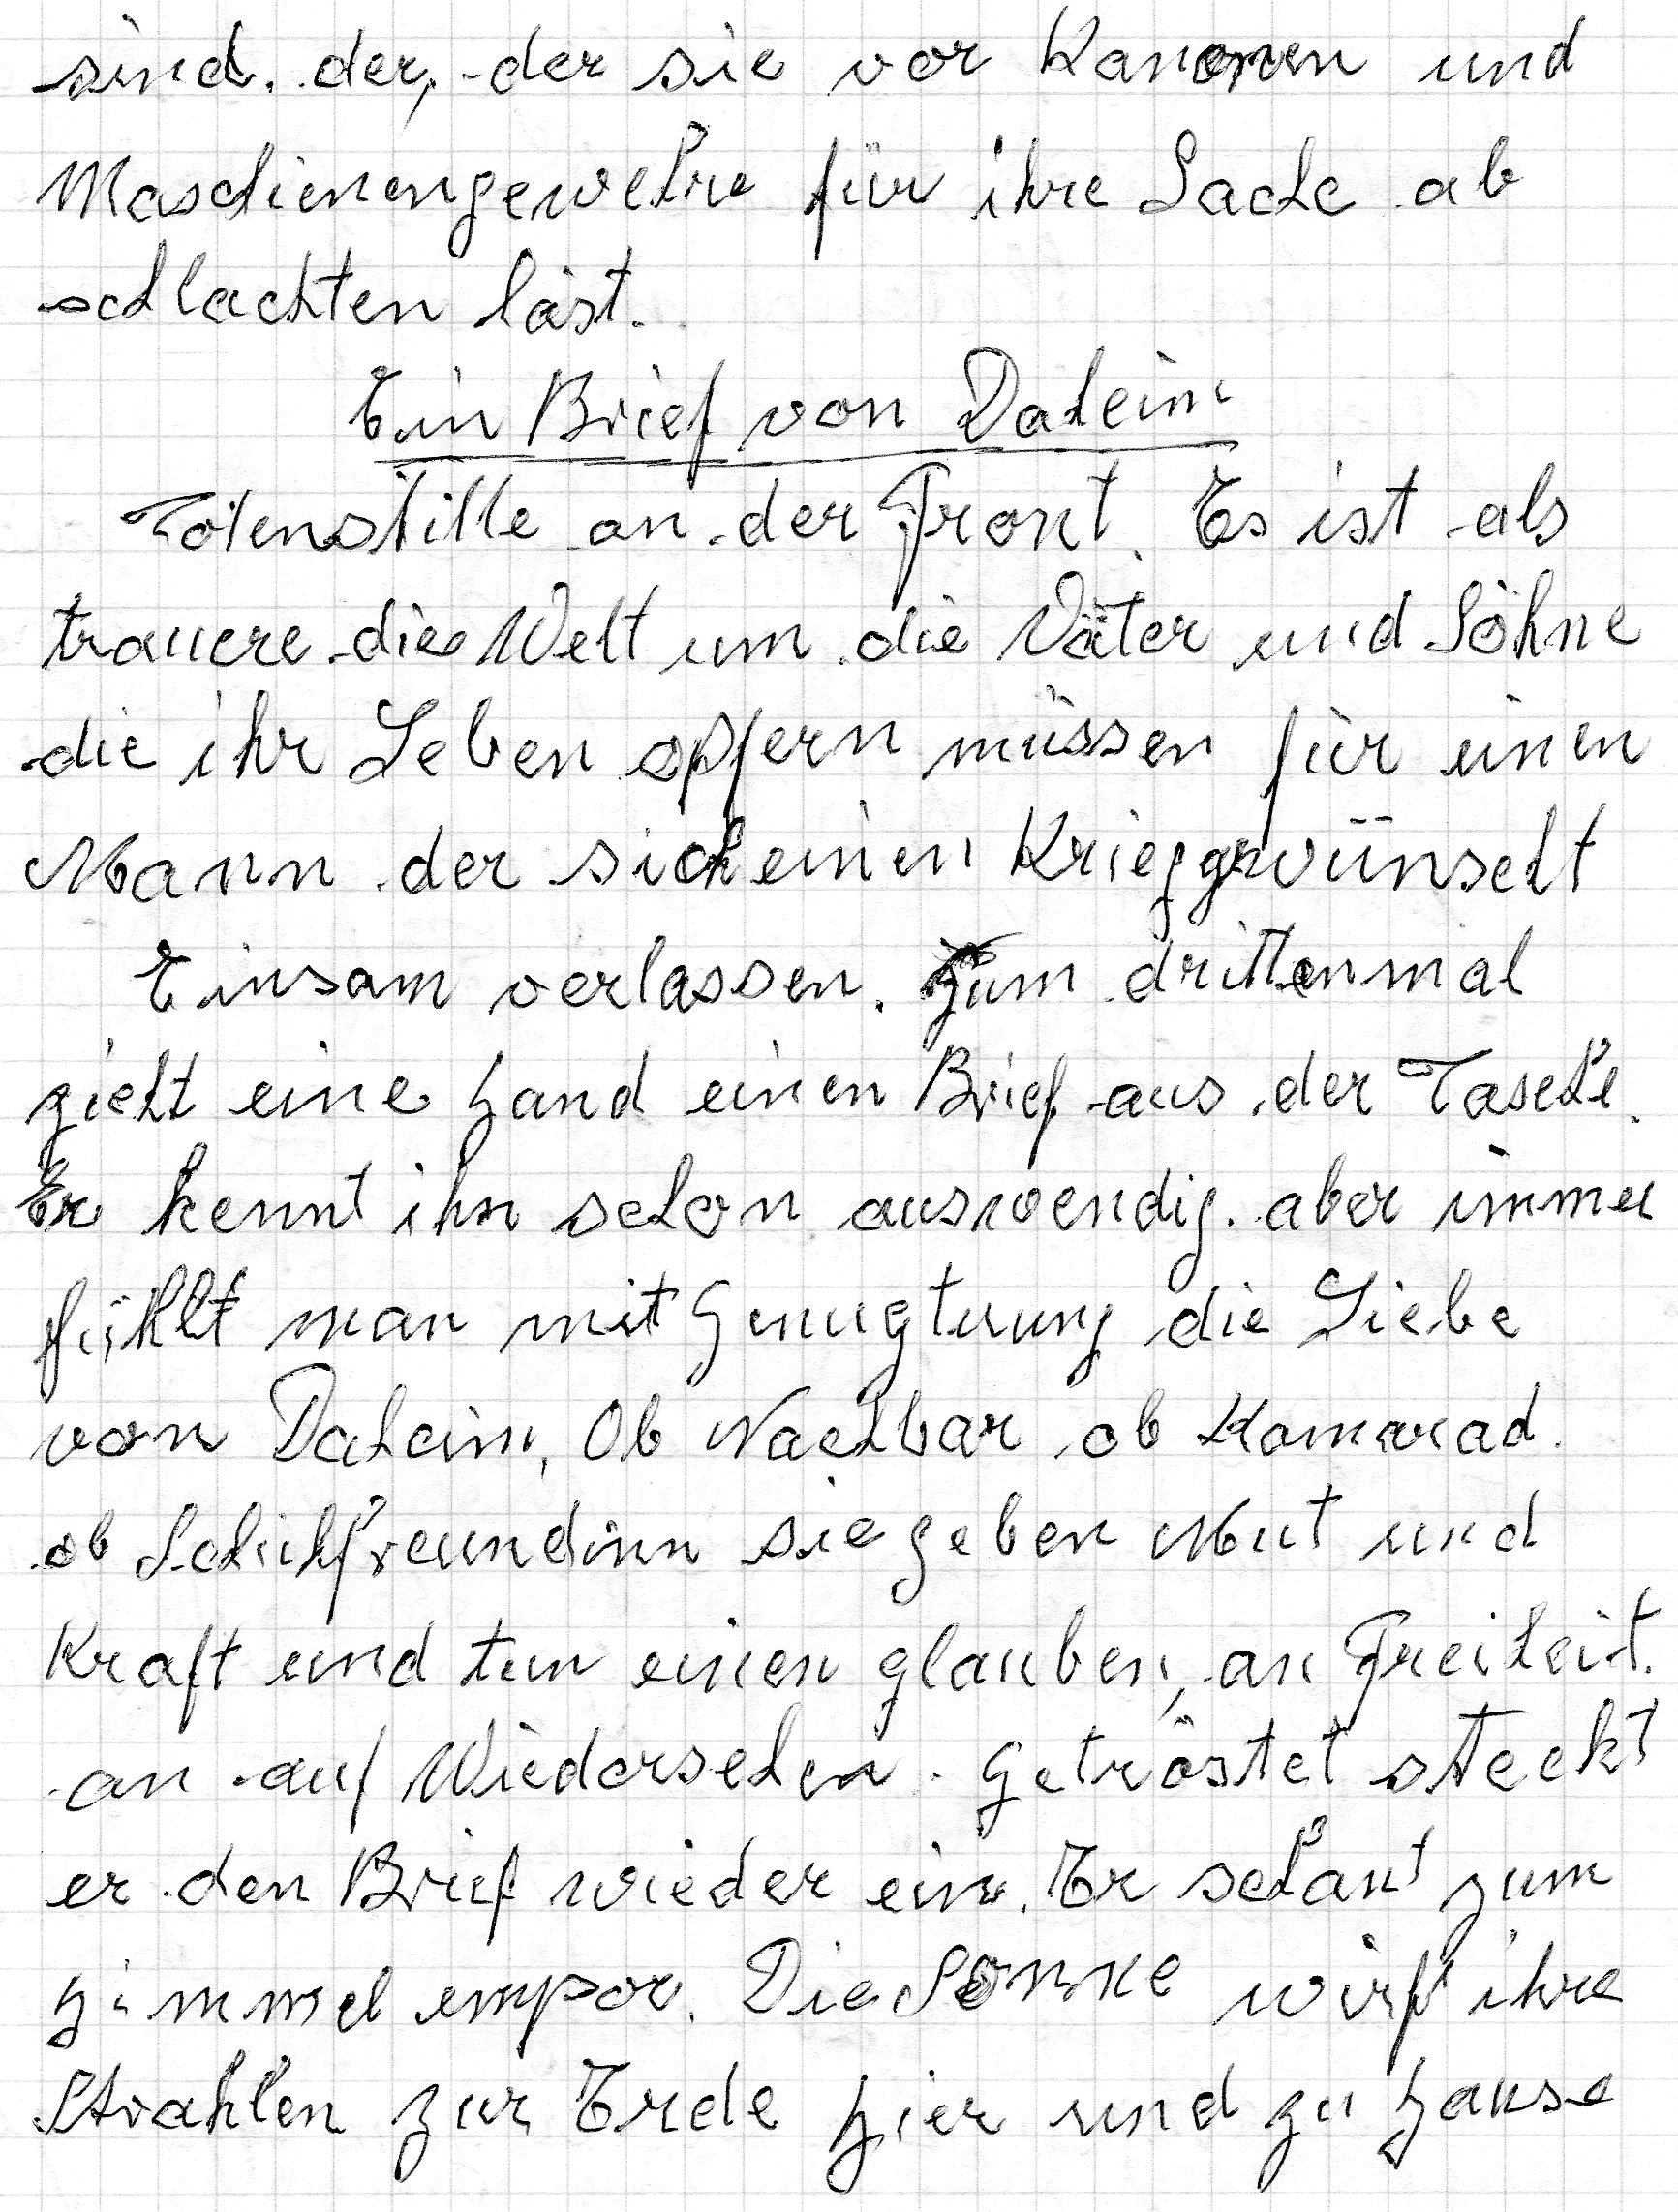 sind. der, der sie vor Kanonen und
Maschienengewehre für ihre Sache ab
schlachten läst.
Ein Brief von Daheim
Totenstille an der Front. Es ist als
trauere die Welt um die Väter und Söhne
die ihr Leben opfern müssen für einen
Mann der sich einen Krieg gewünscht
Einsam verlassen. Zum drittenmal
zieht eine Hand einen Brief aus der Tasche.
Er kennt ihn schon auswendig. aber immer
fühlt man mit Genugtuung die Liebe
von Daheim, Ob Nachbar ob Kamarad.
ob Schulfreundinn sie geben Mut und
Kraft und tun einen glauben, an Freiheit.
an auf Wiedersehen. Getröstet steckt
er den Brief wieder ein. Er schaut zum
Himmel empor. Die Sonne wirft ihre
Strahlen zur Erde Hier und zu Hause